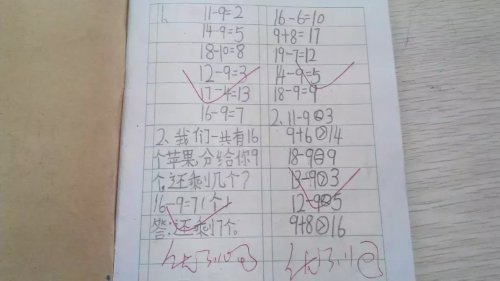 1.
11-9=2
14-9=5
18-10=8
12-9=3
17-4=13
16-9=7
2、我们一共有16
个苹果,分给你9
个,还剩几个?
16-9=7(个)
答:还剩7个。
16-6=10
9+8=17
19-7=12
14-9=5
18-9=9
2、11-9<3
9+6>14
18-9=9
13-9>3
12-9<5
9+8>16